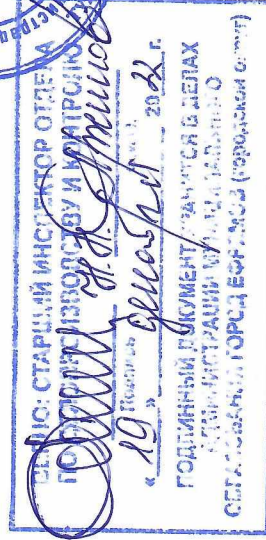 ВЕРНО: СТАРШИЙ ИНСПЕКТОР ОТДЕЛА
ПО ДЕЛОПРОИЗВОДСТВУ И КОНТРОЛЮ
Подпись Н.Н.
« 19 » декабря 2022 г.
ПОДЛИННЫЙ ДОКУМЕНТ ХРАНИТСЯ В ДЕЛАХ
АДМИНИСТРАЦИИ МУНИЦИПАЛЬНОГО
ОБРАЗОВАНИЯ ГОРОД ЕФРЕМОВ (городской округ)